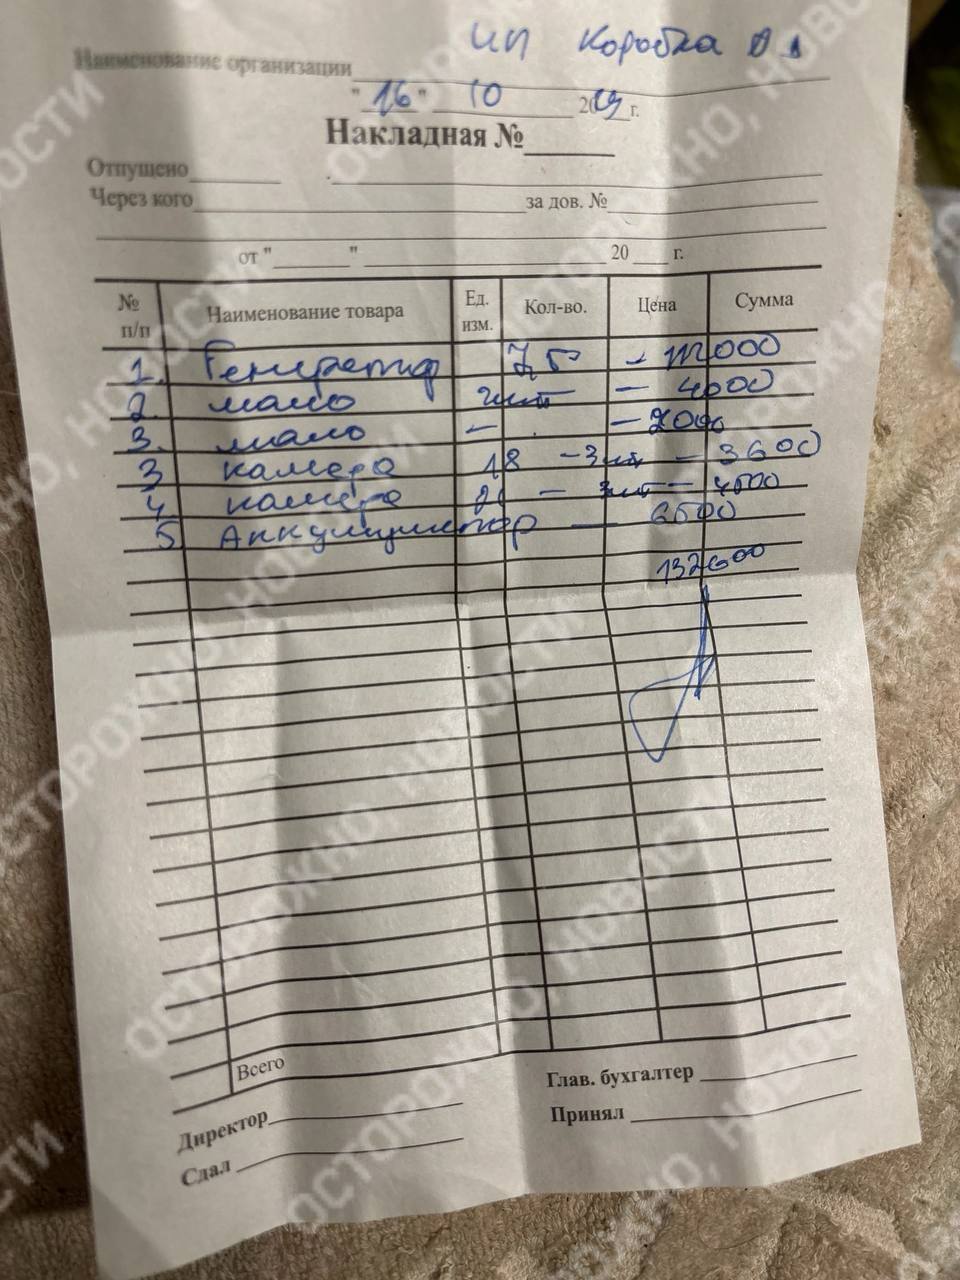 ИП Коробка О В
Наименование организации
"16" 10 20 г.
Накладная №
Отпущено
Через кого за дов. №
от " " 20 г.
№ п/п Наименование товара Ед. изм. Кол-во. Цена Сумма
1. Генератор 7,5 - 112000
2. масло 2шт - 4000
3. масло - - 2000
3 камера 18 - 3шт - 3600
4 камера - 3шт - 4500
5 Аккумулятор - 6500
132600
Всего
Глав. бухгалтер
Директор Принял
Сдал
ОСТОРОЖНО, НОВОСТИ